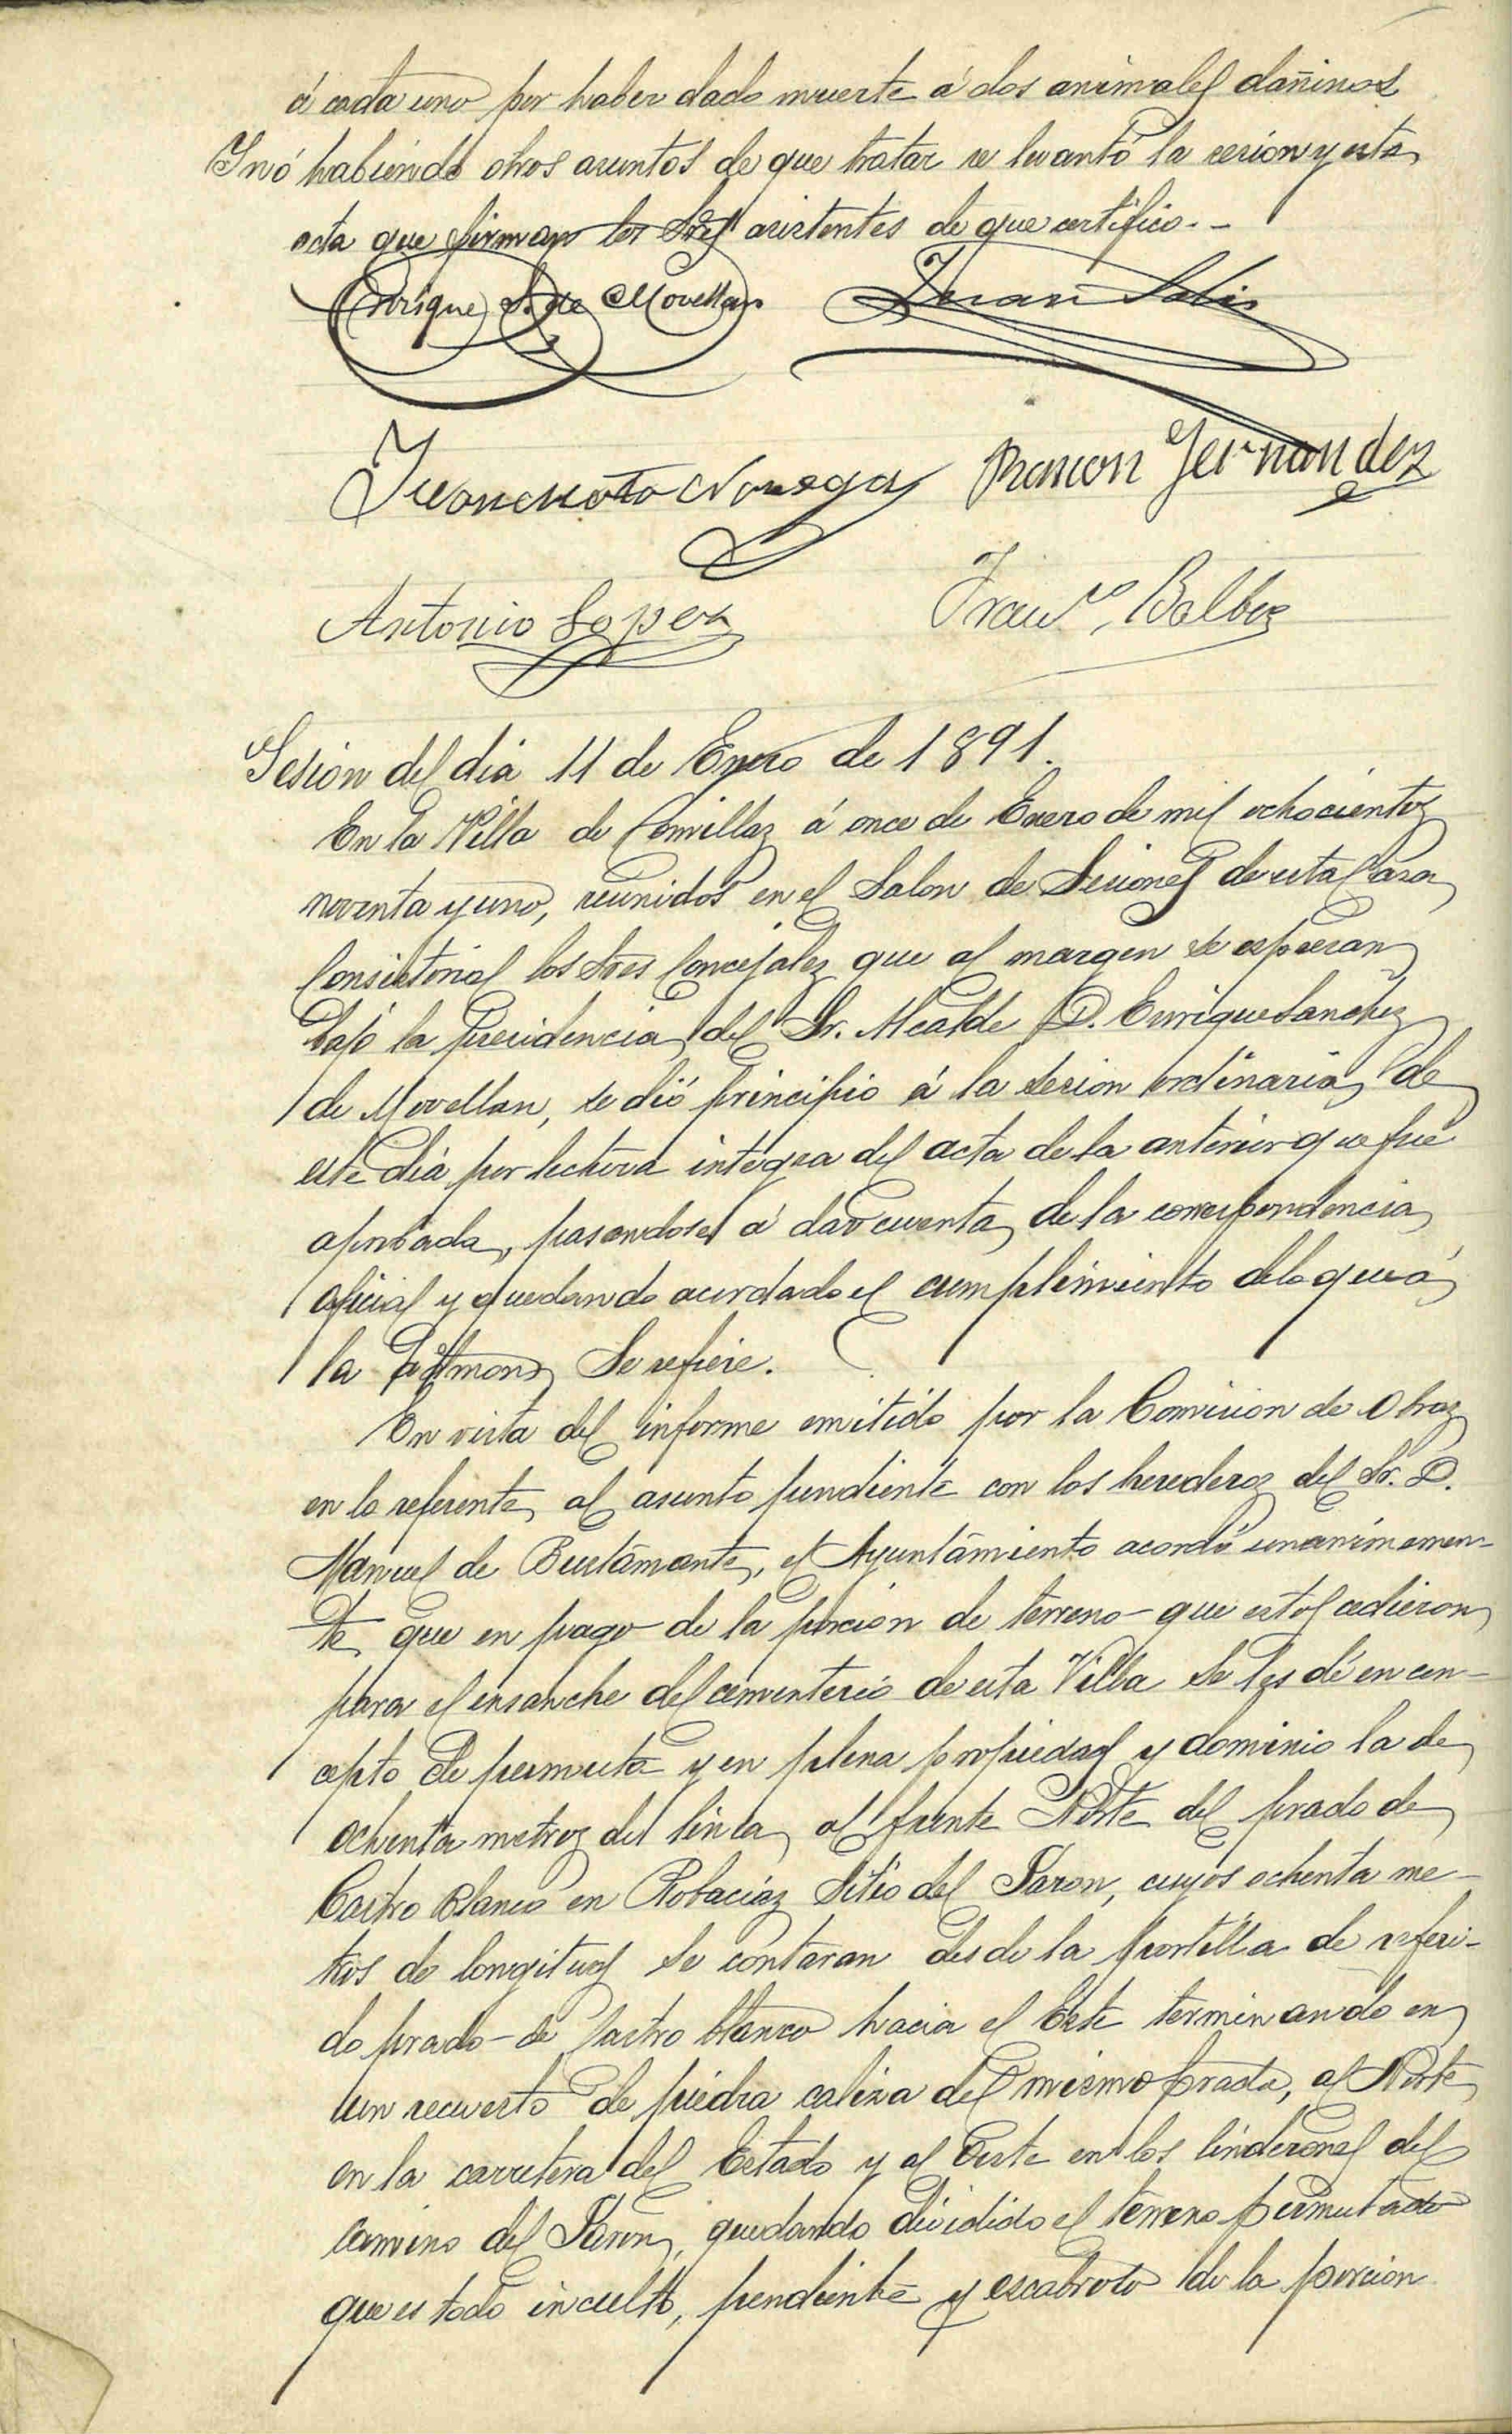 á cada uno por haber dado muerte á dos animales dañinos
Y nó habiendo otros asuntos de que tratar se levantó la sesion y esta
acta que firman los Sres asistentes de que certifico.-
Enrique S. de Movellan Juan Solis
Juan Noriega Ramon Fernandez
Antonio Lopez Franco, Balboa
Sesion del dia 11 de Enero de 1891.
En la Villa de Comillas á once de Enero de mil ochocientos
noventa y uno, reunidos en el Salon de Sesiones de esta Casa
Consistorial los Sres Concejales que al margen se espresan
bajo la presidencia del Sr. Alcalde D. Enrique Sanchez
de Movellan, se dió principio á la sesion ordinaria de
este dia por lectura integra del acta de la anterior que fué
aprobada, pasandose á dar cuenta de la correspondencia
oficial y quedando acordado el cumplimiento de lo que á
la Se refiere.
En vista del informe emitido por la Comision de Obras
en lo referente al asunto pendiente con los herederos del Sr. D.
Manuel de Bustamante, el Ayuntamiento acordó unanimemen-
te que en pago de la porcion de terreno que estos cedieron
para el ensanche del cementerio de esta Villa se les dé en con-
cepto de permuta y en plena propiedad y dominio la de
ochenta metros de linea al frente Norte del prado de
Castro Blanco en Robacias Sitio del Jaron, cuyos ochenta me-
tros de longitud se contaran desde la portilla de referi-
do prado de Castro blanco hacia el Este terminando en
un recuesto de piedra caliza del mismo prado, al Norte
en la carretera del Estado y al Oeste en los linderones del
camino del Jaron, quedando dividido el terreno permutado
que es todo inculto, pendiente y escabroso de la porcion